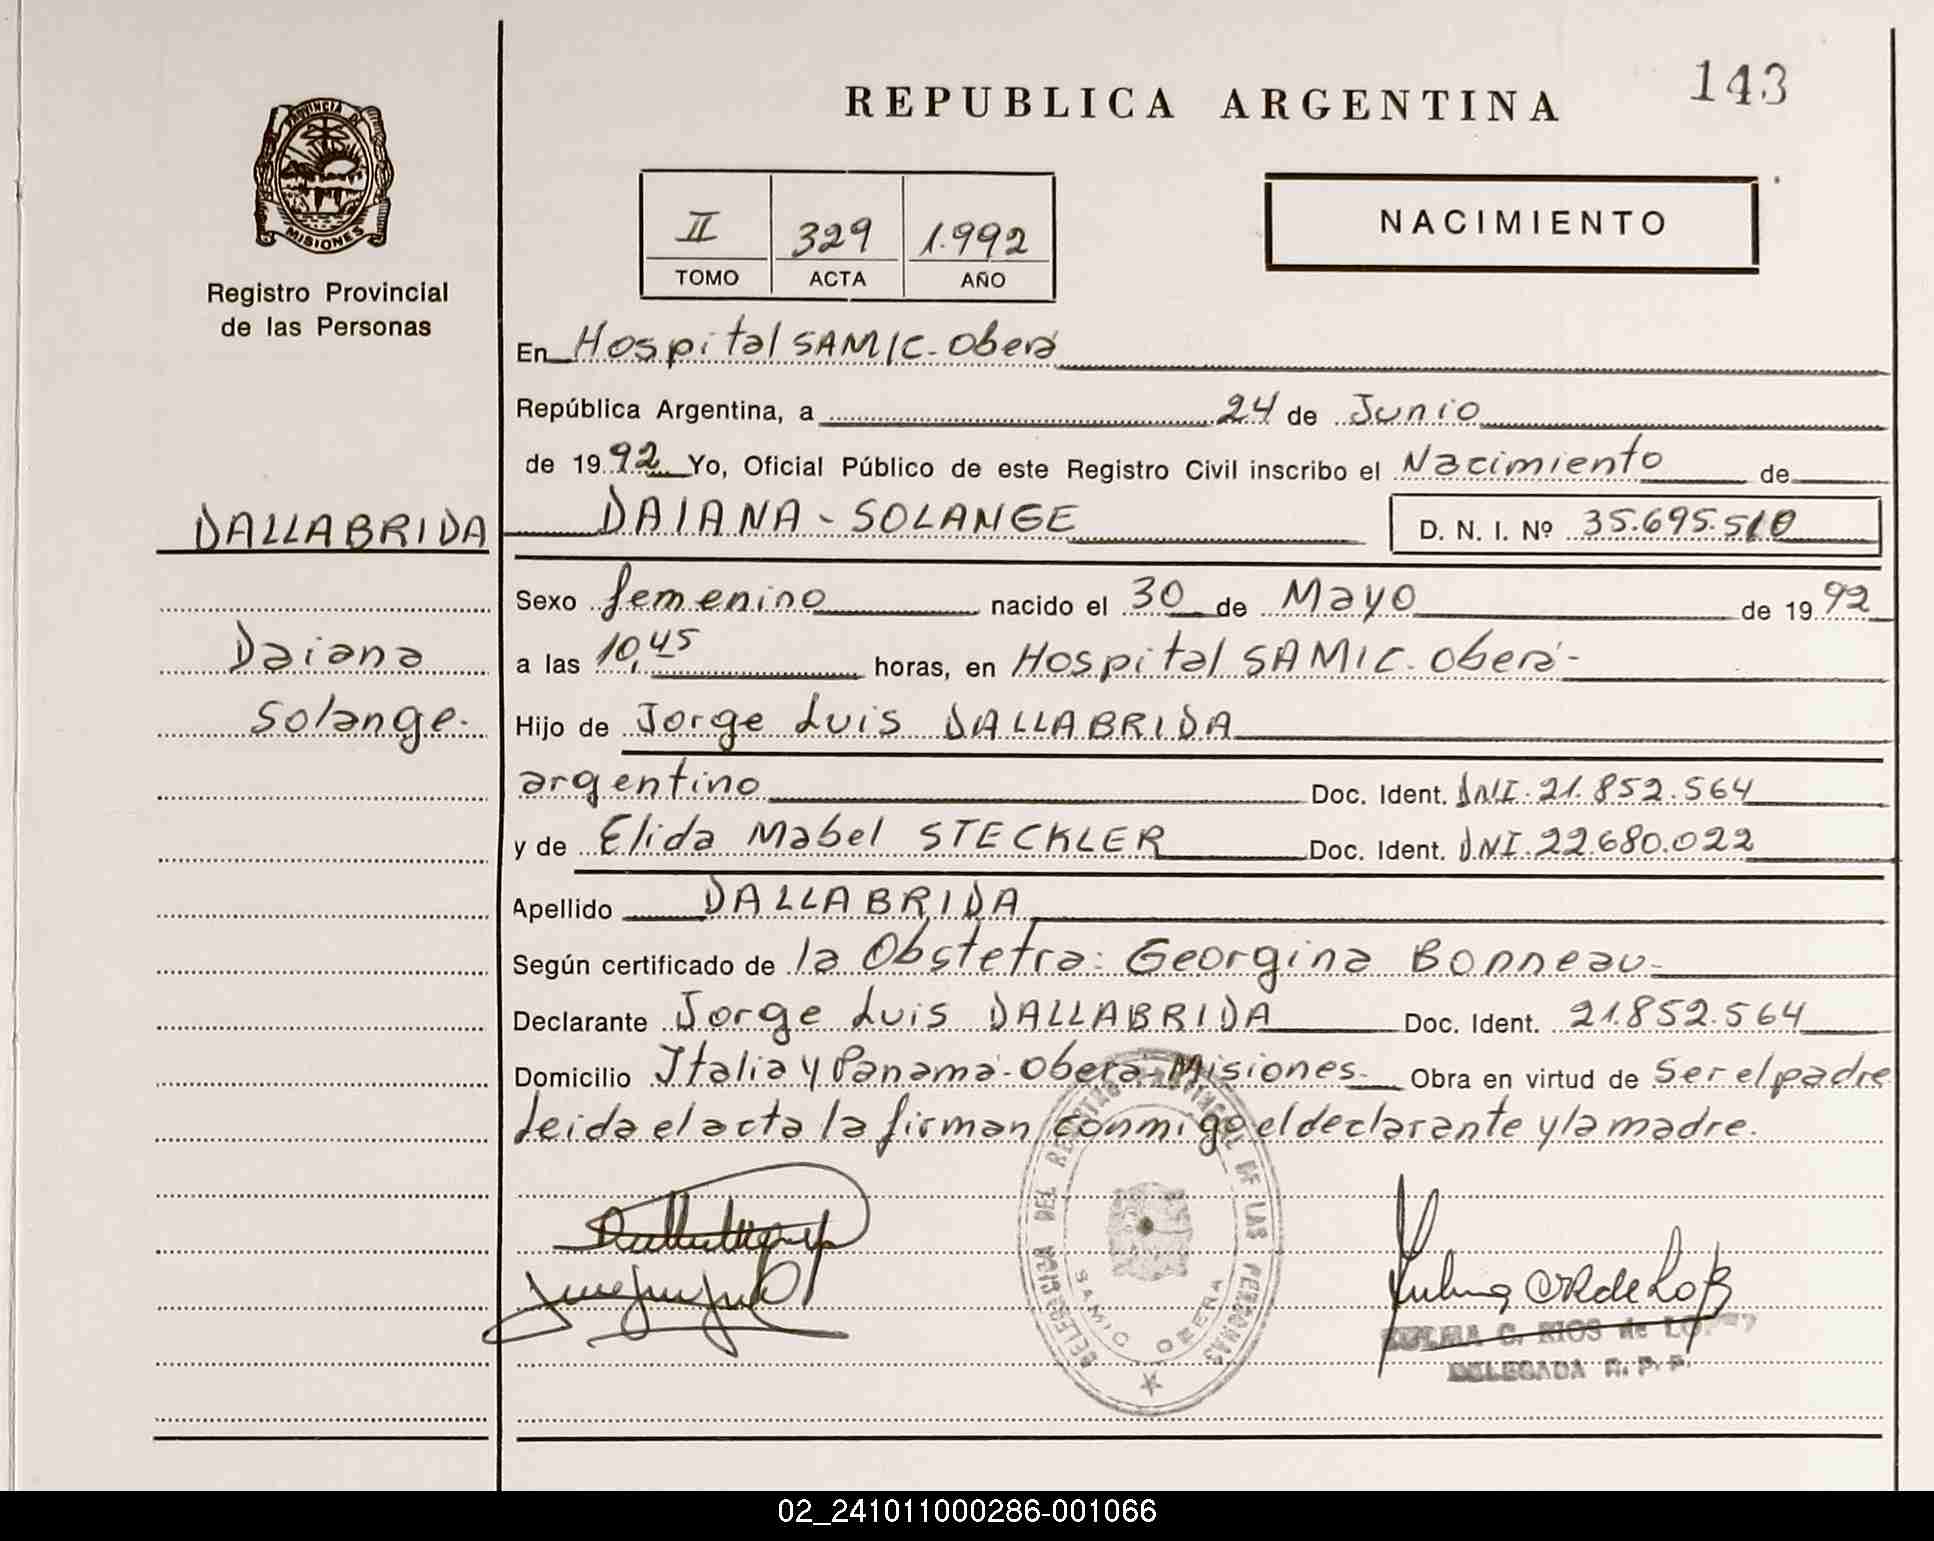 REPUBLICA ARGENTINA
143
PROVINCIA DE
MISIONES
Registro Provincial
de las Personas
II 329 1.992
TOMO ACTA AÑO
NACIMIENTO
En Hospital SAMIC - Oberá
República Argentina, a 24 de Junio
de 1992 Yo, Oficial Público de este Registro Civil inscribo el Nacimiento de
DALLABRIDA
Daiana
Solange.
DAIANA - SOLANGE D. N. I. Nº 35.695.510
Sexo femenino nacido el 30 de Mayo de 1992
a las 10,45 horas, en Hospital SAMIC. Oberá-
Hijo de Jorge Luis DALLABRIDA
argentino Doc. Ident. DNI. 21.852.564
y de Elida Mabel STECKLER Doc. Ident. DNI. 22.680.022
Apellido DALLABRIDA
Según certificado de la Obstetra: Georgina Bonneau-
Declarante Jorge Luis DALLABRIDA Doc. Ident. 21.852.564
Domicilio Italia y Panamá - Oberá - Misiones- Obra en virtud de Ser el padre
Leida el acta la firman conmigo el declarante y la madre.
DELEGACION DEL REGISTRO PROVINCIAL DE LAS PERSONAS
SAMIC OBERA
C. RIOS de LOPEZ
DELEGADA R. P. P.
02_241011000286-001066